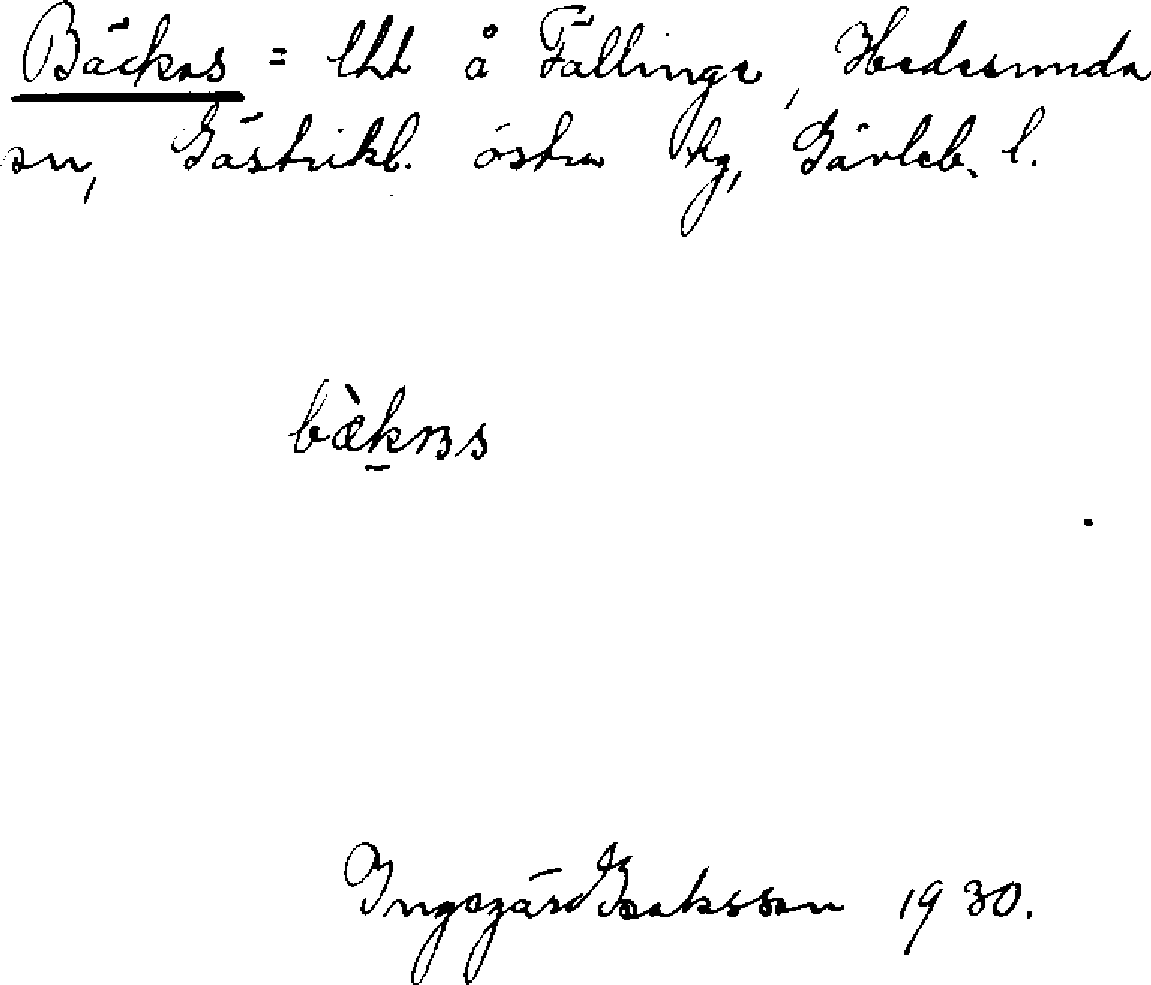 Bäckas = lht å Fallinge, Hedesunda
sn, Gästrikl. östra tg, Gävleb. l.
bæ̀kas
Ingegärd Isaksson 1930.